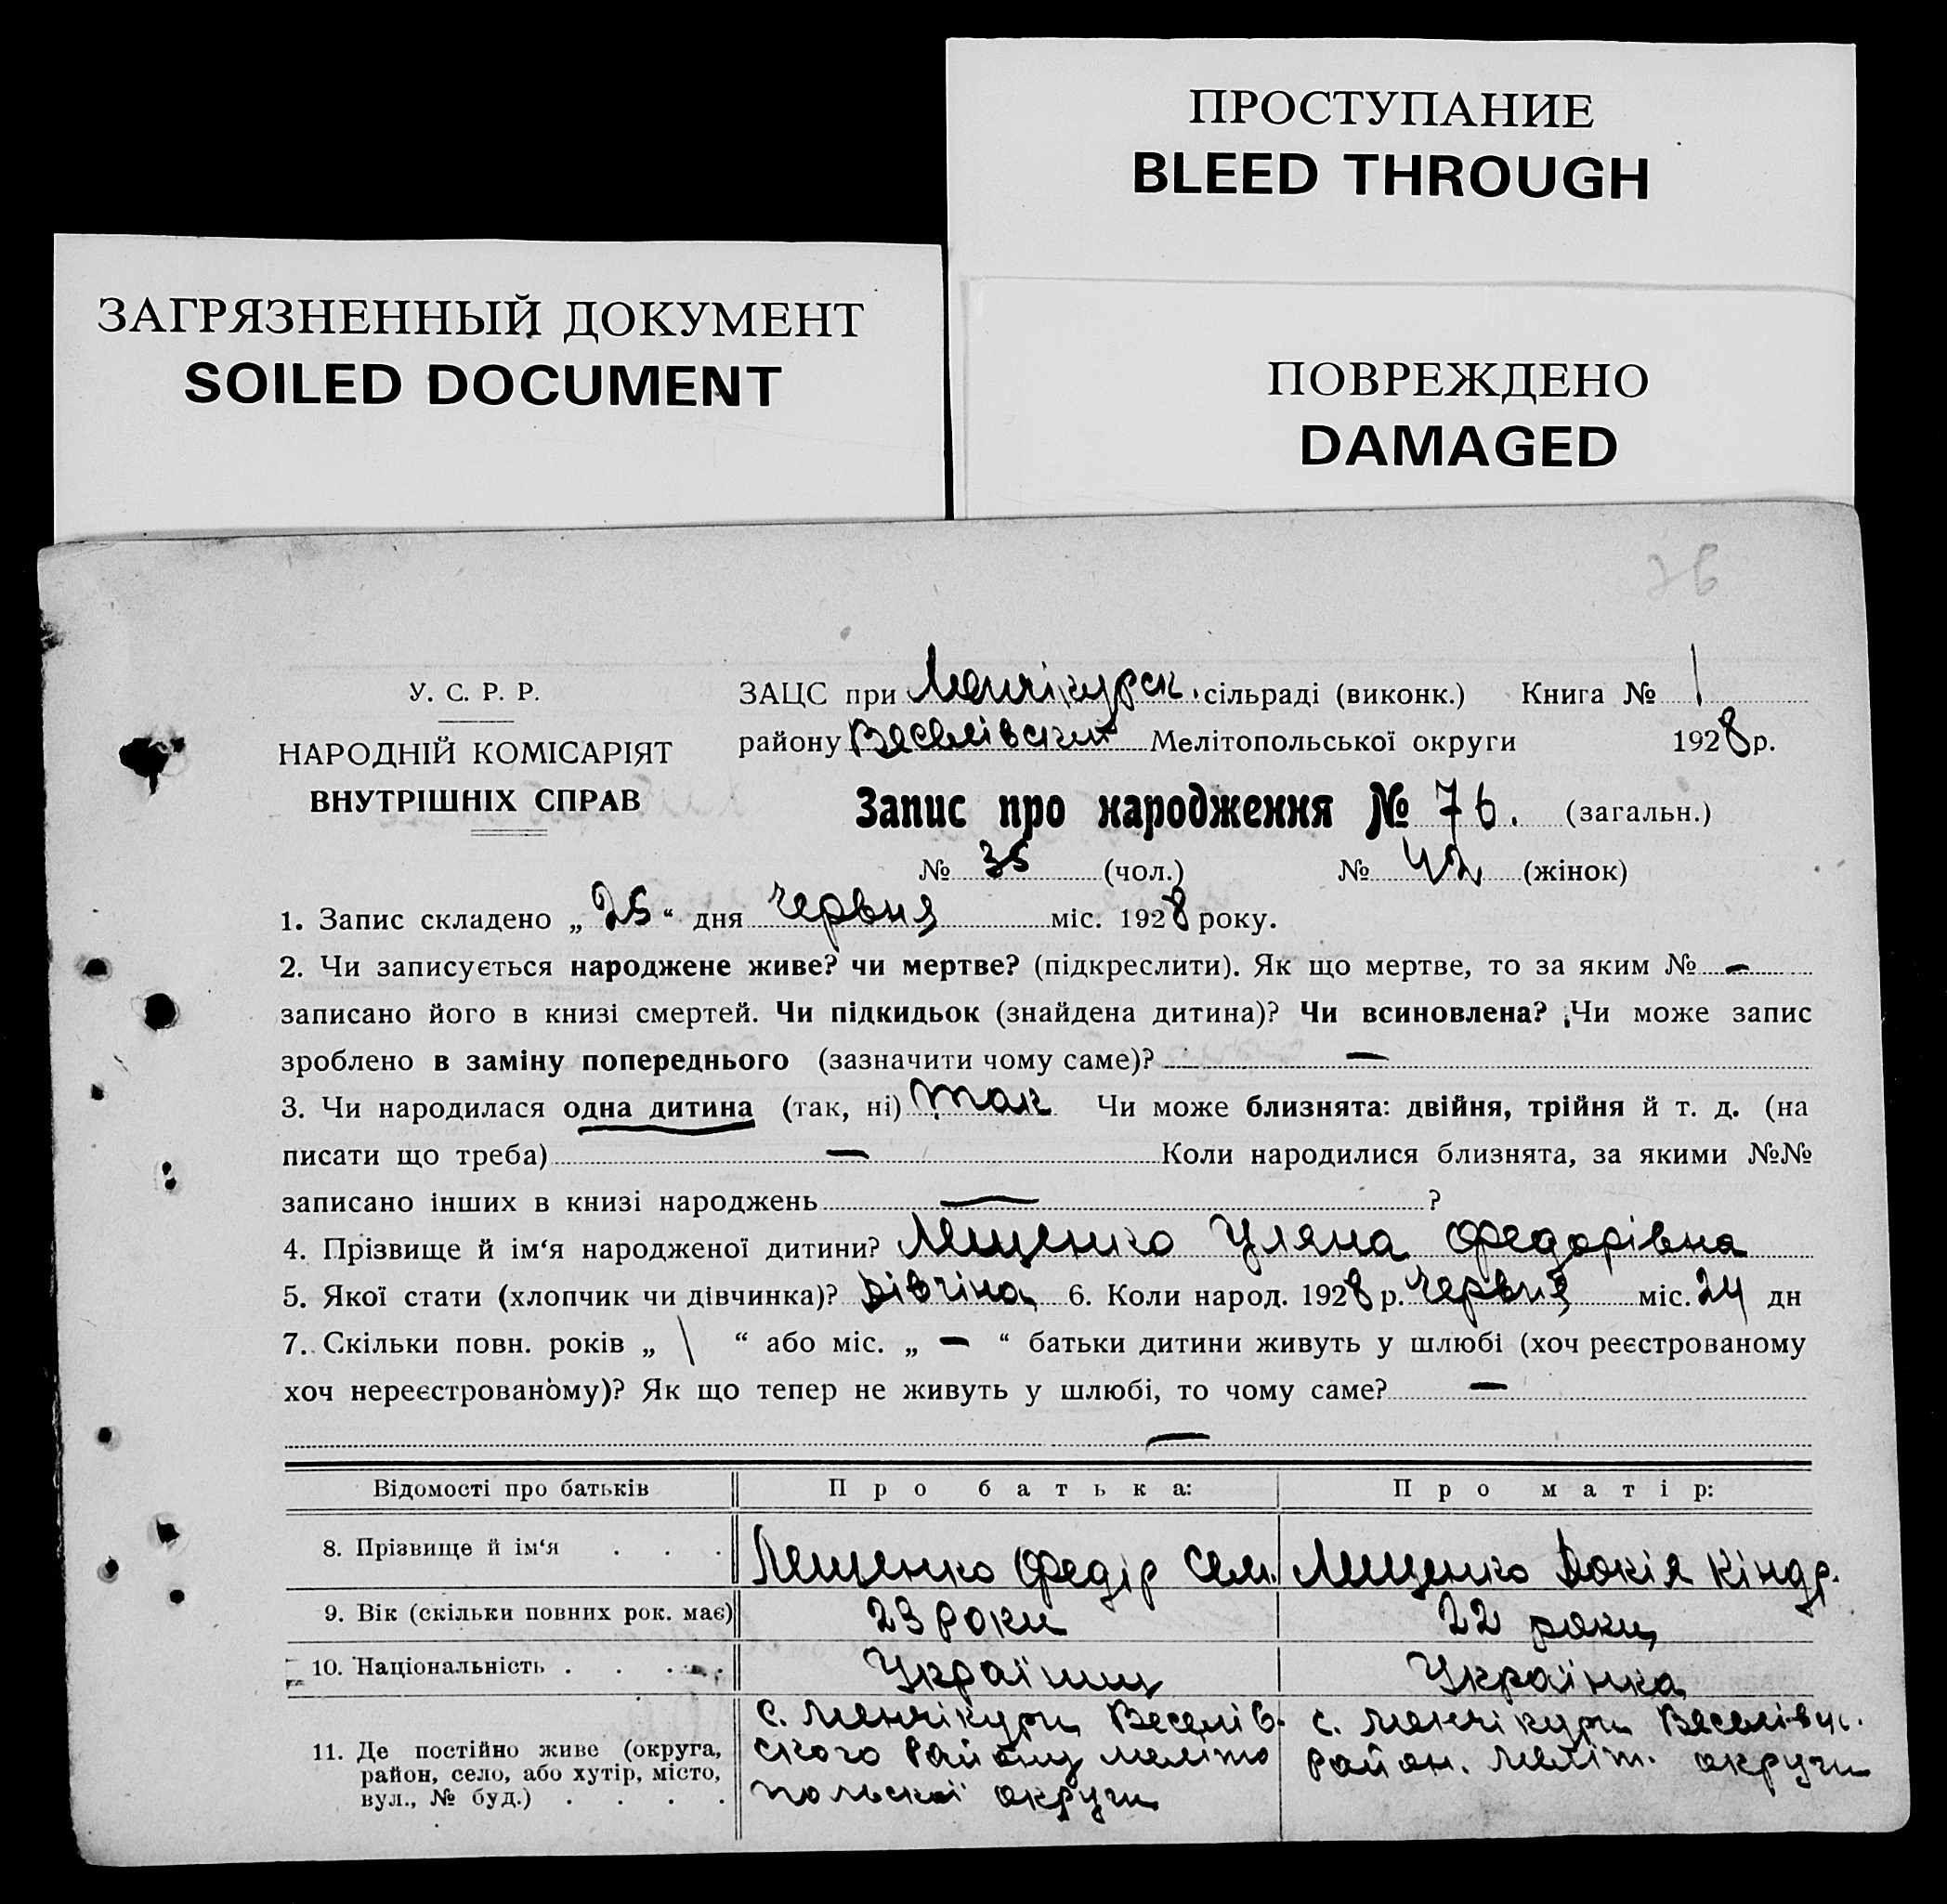 ПРОСТУПАНИЕ
BLEED THROUGH
ЗАГРЯЗНЕННЫЙ ДОКУМЕНТ
SOILED DOCUMENT
ПОВРЕЖДЕНО
DAMAGED
76
У. С. Р. Р.
НАРОДНІЙ КОМІСАРІЯТ
ВНУТРІШНІХ СПРАВ
ЗАЦС при Менчікурск. сільраді (виконк.) Книга № 1
району Веселівский Мелітопольської округи 1928 р.
Запис про народження № 76. (загальн.)
№ 35 (чол.) № 42 (жінок)
1. Запис складено „ 25 “ дня червня міс. 1928 року.
2. Чи записується народжене живе? чи мертве? (підкреслити). Як що мертве, то за яким № —
записано його в книзі смертей. Чи підкидьок (знайдена дитина)? Чи всиновлена? Чи може запис
зроблено в заміну попереднього (зазначити чому саме)? —
3. Чи народилася одна дитина (так, ні) так Чи може близнята: двійня, трійня й т. д. (на
писати що треба) — Коли народилися близнята, за якими №№
записано інших в книзі народжень — ?
4. Прізвище й ім‘я народженої дитини? Лещенко Уляна Федорівна
5. Якої стати (хлопчик чи дівчинка)? Дівчіна 6. Коли народ. 1928 р. червня міс. 24 дн
7. Скільки повн. років „ \ “ або міс. „ — “ батьки дитини живуть у шлюбі (хоч реєстрованому
хоч нереєстрованому)? Як що тепер не живуть у шлюбі, то чому саме? —
—
Відомості про батьків Про батька: Про матір:
8. Прізвище й ім‘я . . . Лещенко Федір Сем. Лещенко Докія Кіндр.
9. Вік (скільки повних рок. має) 23 роки 22 роки
10. Національність . . . . Українц Українка
11. Де постійно живе (округа,
район, село, або хутір, місто,
вул., № буд.) . . . .
с. Менчікури Веселів-
ского району меліто
польскої округи
с. Менчікури Веселівс.
район. Меліт. округи